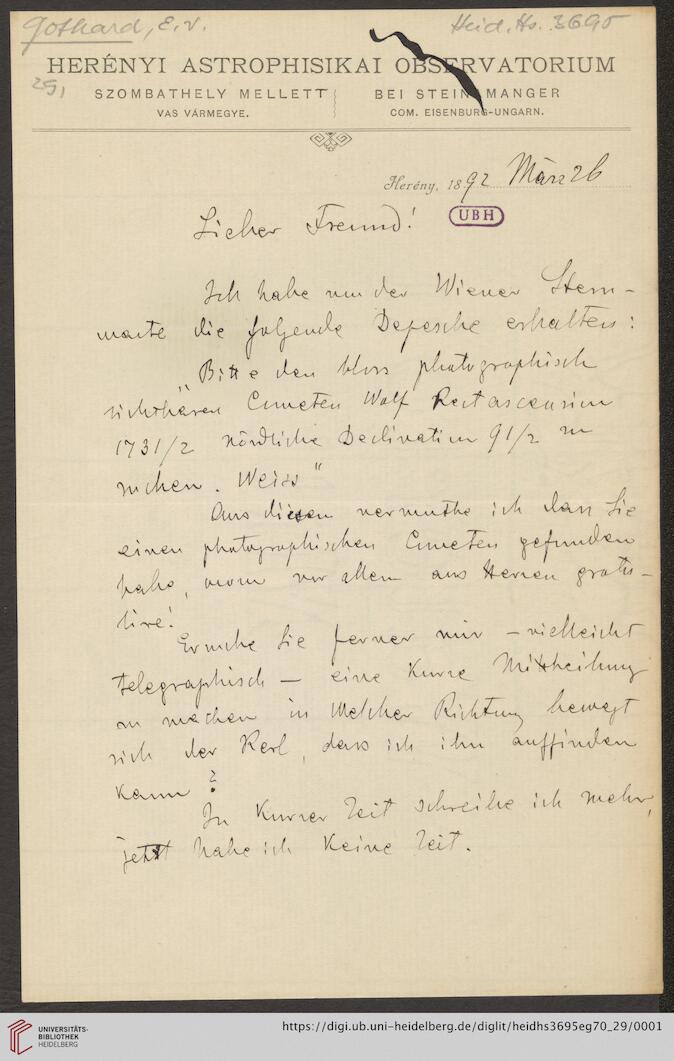 Gothard, E. v.
Heid. Hs. 3695
29,
HERÉNYI ASTROPHISIKAI OBSERVATORIUM
SZOMBATHELY MELLETT
BEI STEINAMANGER
VAS VÁRMEGYE.
COM. EISENBURG-UNGARN.
Herény, 1892 März 26
UBH
Lieber Freund!
Ich habe von der Wiener Stern-
warte die folgende Depesche erhalten:
„Bitte den bloss photographisch
sichtbaren Cometen Wolf Rectascension
1731/2 nördliche Declination 91/2 zu
suchen. Weiss"
Aus diesen vermuthe ich dass Sie
einen photographischen Cometen gefunden
habe, wozu vor allem aus Herzen gratu-
lire!
Ersuche Sie ferner mir – vielleicht
telegraphisch – eine kurze Mittheilung
zu machen in welcher Richtung bewegt
sich der Kerl, dass ich ihn auffinden
kann?
In kurzer Zeit schreibe ich mehr,
jetzt habe ich keine Zeit.
UNIVERSITÄTS-
BIBLIOTHEK
HEIDELBERG
https://digi.ub.uni-heidelberg.de/diglit/heidhs3695eg70_29/0001